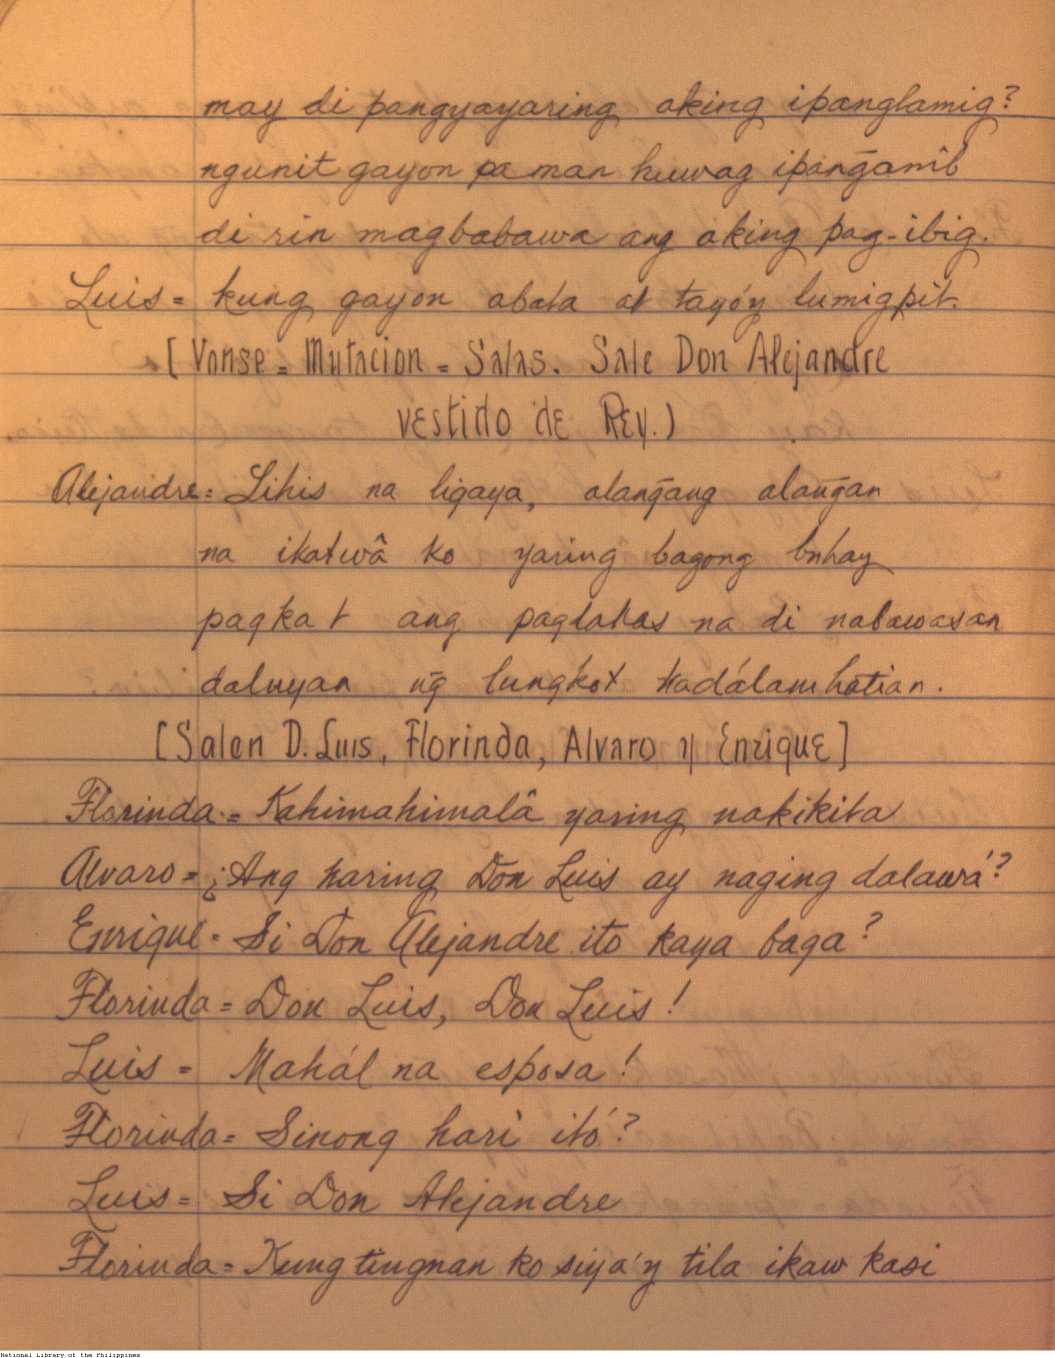 may di pangyayaring aking ipanglamig?
ngunit gayon pa man huwag ipang̃anib
di rin magbabawa ang aking pag-ibig.
Luis = kung gayon abata at tayóy lumigpit.
[Vanse = Mutacion = Salas. Sale Don Alejandre
vestido de Rey.)
Alejandre = Lihis na ligaya, alang̃ang alang̃an
na ikatwâ ko yaring bagong buhay
pagkat ang pagtahas na di nabawasan
daluyan ng̃ lungkot kadálamhatian.
[Salen D. Luis, Florinda, Alvaro y Enrique]
Florinda = Kahimahimalâ yaring nakikita
Alvaro = ¿Ang haring Don Luis ay naging dalawá?
Enrique = Si Don Alejandre ito kaya baga?
Florinda = Don Luis, Don Luis!
Luis = Mahál na esposa!
Florinda = Sinong hari itó?
Luis = Si Don Alejandre
Florinda = Kung tingnan ko siya'y tila ikaw kasi
National Library of the Philippines